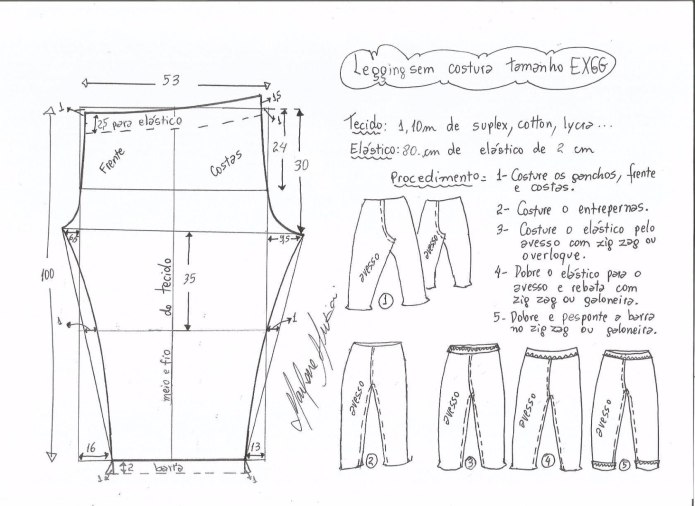 Legging sem costura tamanho EXGG
Tecido: 1,10m de suplex, cotton, lycra...
Elástico: 80 cm de elástico de 2 cm
Procedimento: 1- Costure os ganchos, frente
e costas.
2- Costure o entrepernas.
3- Costure o elástico pelo
avesso com zig zag ou
overloque.
4- Dobre o elástico para o
avesso e rebata com
zig zag ou galoneira.
5- Dobre e pesponte a barra
no zig zag ou galoneira.
53
1
1,5
1
2,5 para elástico
24
30
Frente
Costas
6,5
9,5
100
35
meio e fio do tecido
1
1
16
13
2
barra
1
1
avesso
avesso
1
avesso
avesso
avesso
avesso
2
3
4
5